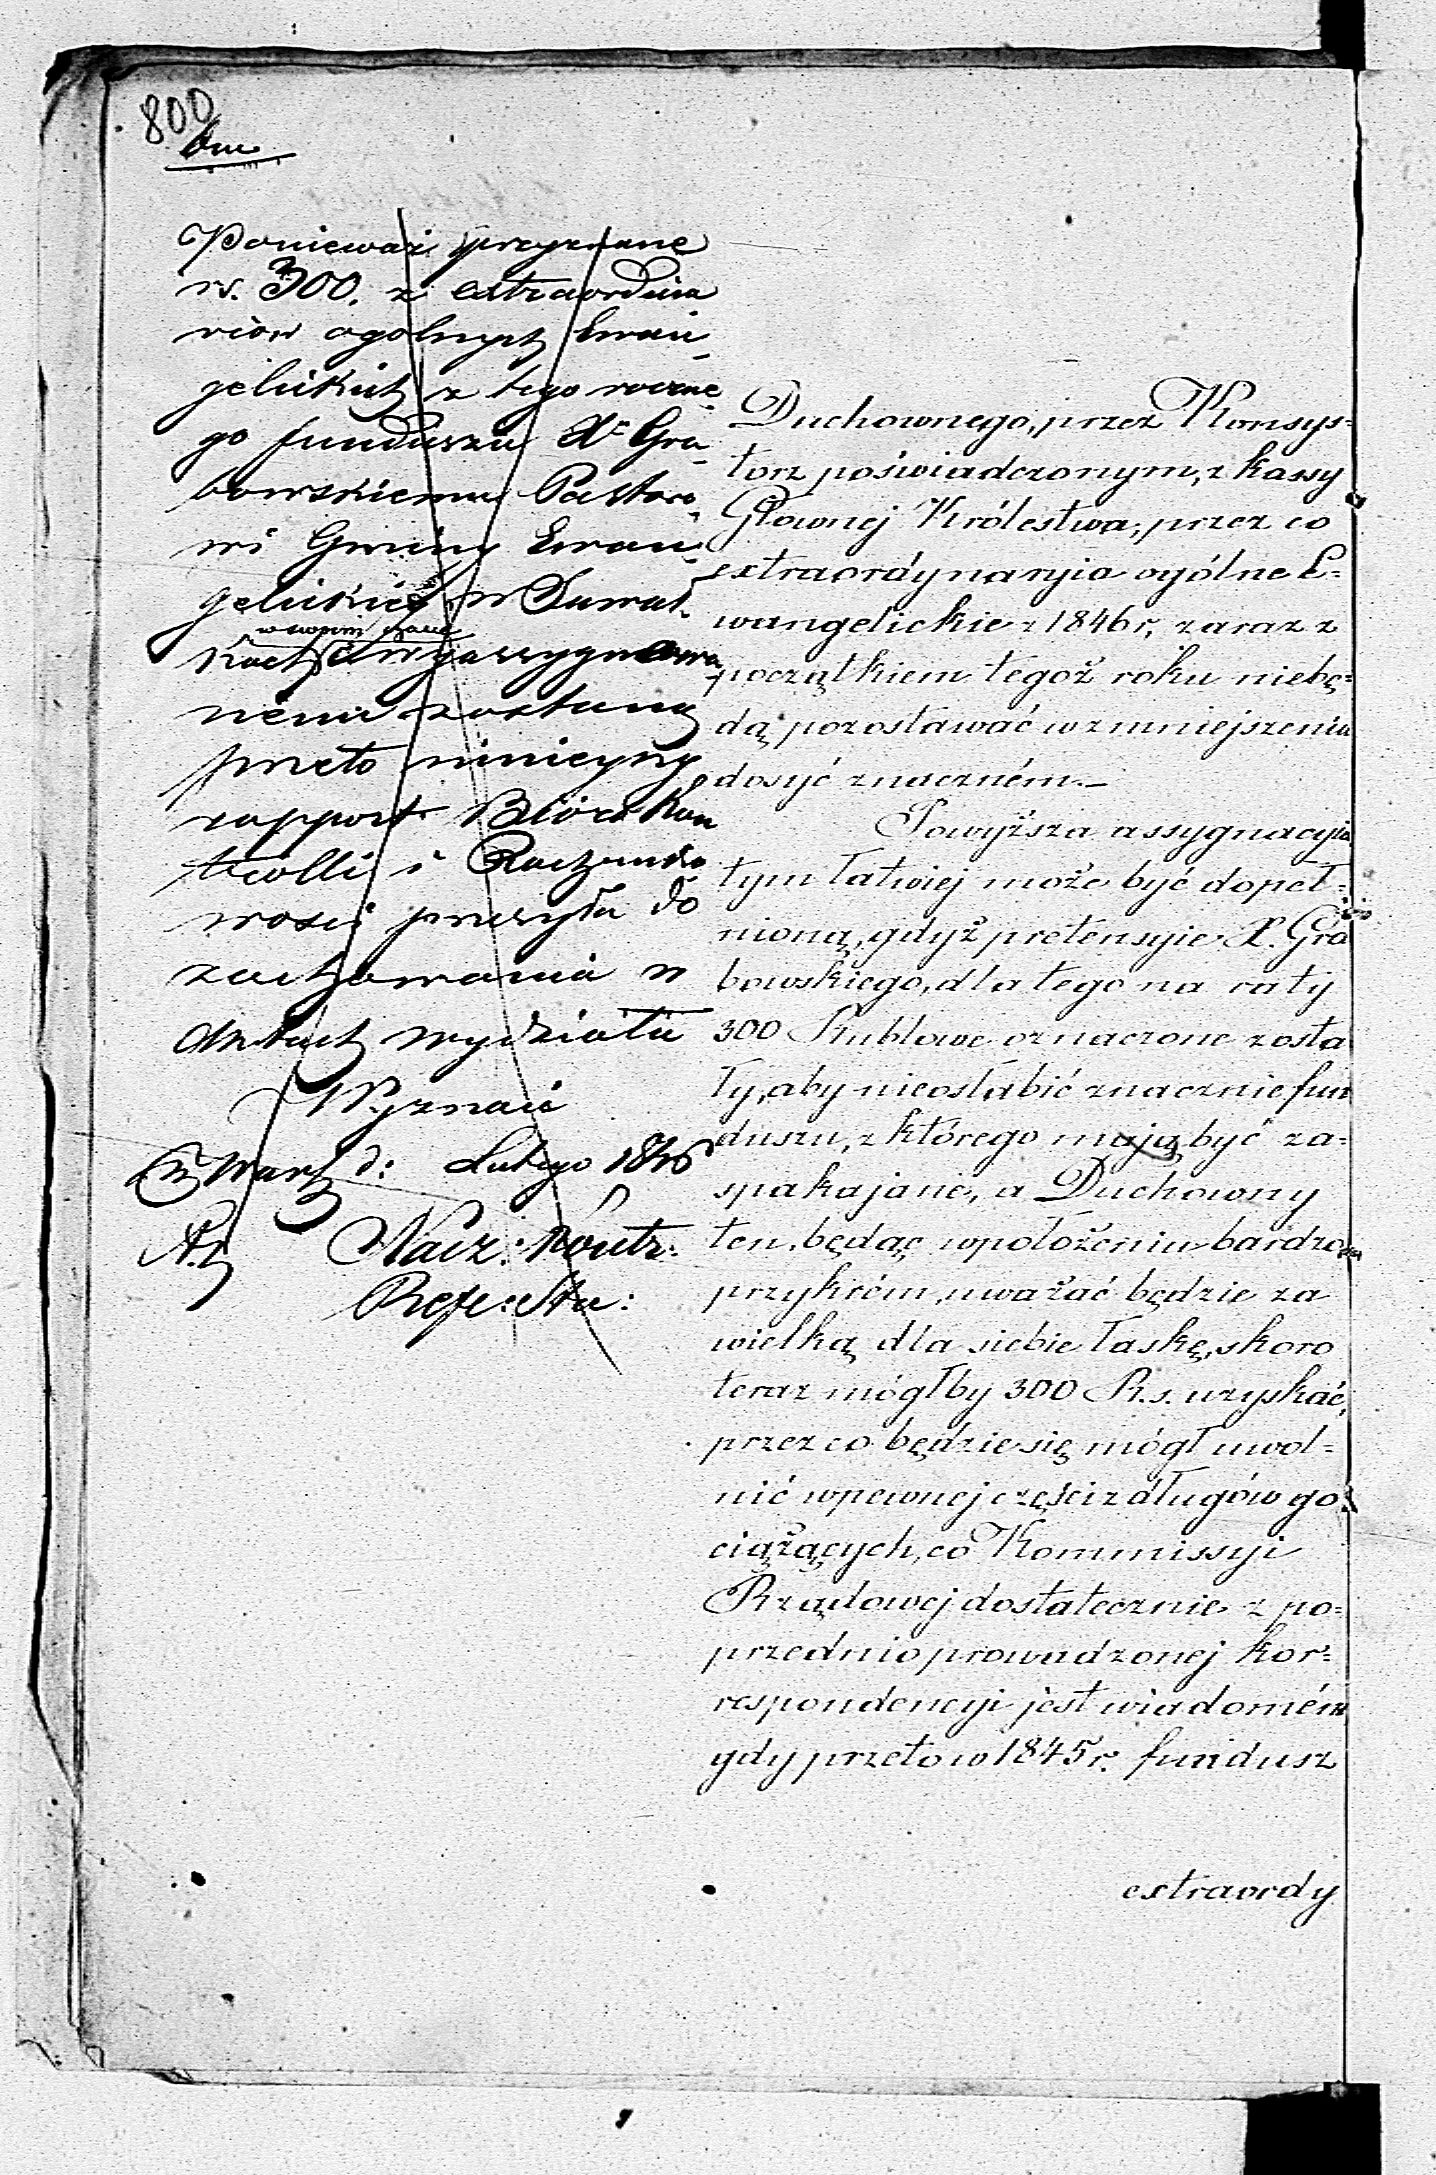 800
Poniewaz przyznane
rs. 300. z extraordina
riów ogolnych Ewan
gelickich z tego roczne
go funduszu Xu Gra
bowskiemu Pastoro
wi Gminy Ewan
gelickiej w Suwał
w swoim czasie
kach wyassygnowa
nemi zostaną
przeto niniejszy
rapport Bióro Kon
trolli i Rachunko
wości przesyła do
zachowania w
Aktach wydziału
Wyznań
w Warsz d: Lutego 1846
Nacz: Kontr:
Refe: Sta:
Duchownego, przez Konsys=
torz poświadczonym, z kassy
Głownej Królestwa; przez co
extraordynaryia ogólne E=
wangelickie z 1846 r, zaraz z
początkiem tegoż roku niebę=
dą pozostawać w zmniejszeniu
dosyć znaczném.—
Powyższa assygnacyia
tym łatwiej może być dopeł=
nioną, gdyż pretensyie X. Gra
bowskiego, dla tego na raty
300 Rublowe oznaczone zosta
ły, aby nieosłabić znacznie fun
duszu, z którego mają być za=
spakajane, a Duchowny
ten, będąc w położeniu bardzo
przykrém, uważać będzie za
wielką dla siebie łaskę, skoro
teraz mógłby 300 R.s. uzyskać,
przez co będzie się mógł uwol=
nić w pewnej części z długów go
ciążących, co Kommissyi
Rządowej dostatecznie z po=
przednio prowadzonej kor=
respondencyi jest wiadomém
gdy przeto w 1845 r. fundusz
extraordy